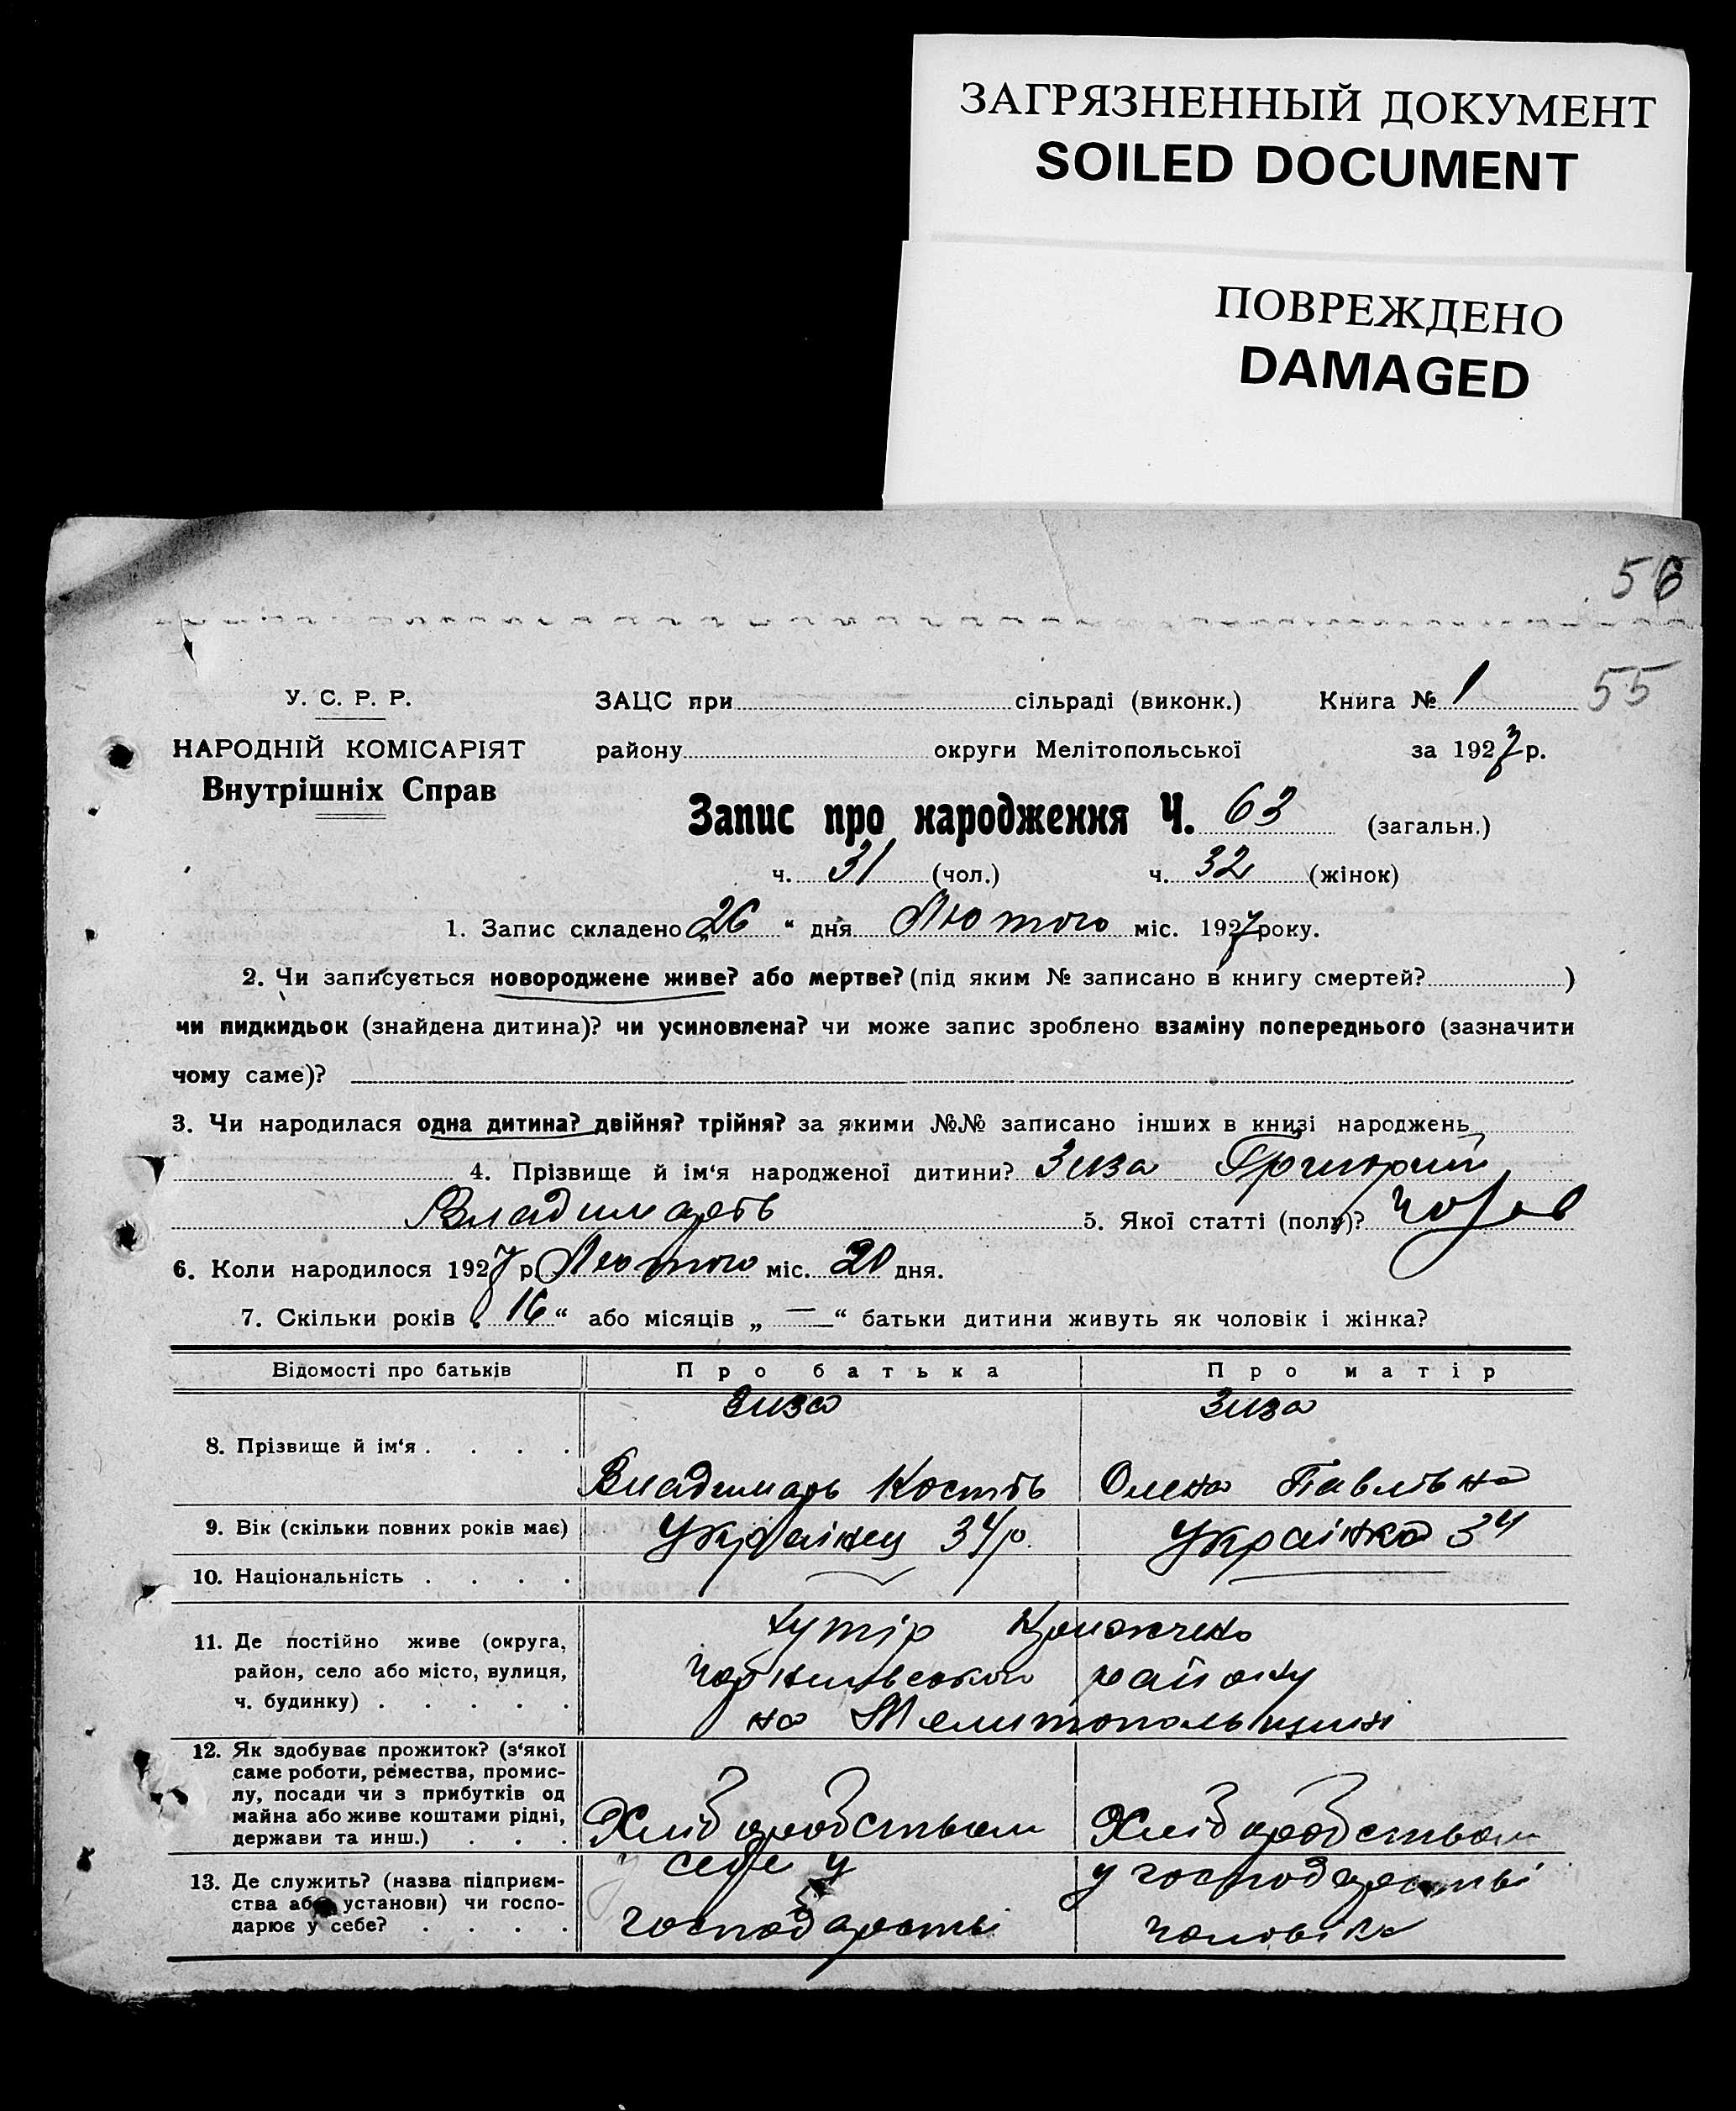 ЗАГРЯЗНЕННЫЙ ДОКУМЕНТ
SOILED DOCUMENT
ПОВРЕЖДЕНО
DAMAGED
56
55
У. С. Р. Р.
ЗАЦС при сільраді (виконк.) Книга № 1
НАРОДНІЙ КОМІСАРІЯТ
району округи Мелітопольської за 1927 р.
Внутрішніх Справ
Запис про народження Ч. 63 (загальн.)
ч. 31 (чол.) ч. 32 (жінок)
1. Запис складено „26“ дня Лютого міс. 1927 року.
2. Чи записується новороджене живе? або мертве? (під яким № записано в книгу смертей? )
чи пидкидьок (знайдена дитина)? чи усиновлена? чи може запис зроблено взаміну попереднього (зазначити
чому саме)?
3. Чи народилася одна дитина? двійня? трійня? за якими №№ записано інших в книзі народжень
4. Прізвище й ім‘я народженої дитини? Зиза Григорий
5. Якої статті (полу)?
6. Коли народилося 1927 р. Лютого міс. 20 дня.
7. Скільки років „16“ або місяців „—“ батьки дитини живуть як чоловік і жінка?
Відомості про батьків Про батька Про матір
8. Прізвище й ім‘я . . . .
Зиза Зиза
Владимарь Костів Олена Павлівна
9. Вік (скільки повних років має) Українец 34 р. Українка 34
10. Національність . . . .
11. Де постійно живе (округа,
район, село або місто, вулиця,
ч. будинку) . . . . .
хутір
району
на Мелитопольщині
12. Як здобуває прожиток? (з‘якої
саме роботи, ремества, промис-
лу, посади чи з прибутків од
майна або живе коштами рідні,
держави та инш.) . . .
Хлібородством Хлібородством
13. Де служить? (назва підприєм-
ства або установи) чи госпо-
дарює у себе? . . . .
у себе у
господарстві
у господарстві
чоловіка